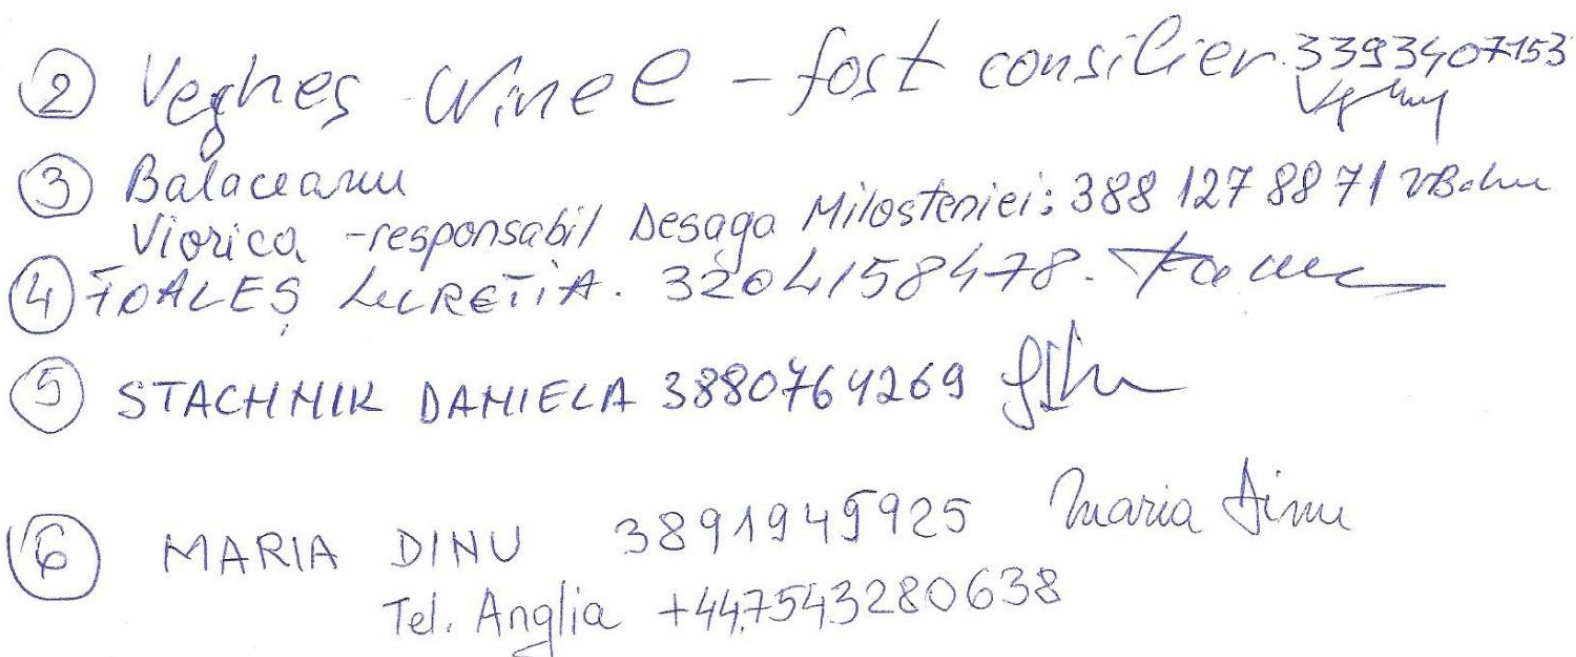 ② Vegheș Ninel - fost consilier. 3393407153
③ Balaceanu
Viorica - responsabil Desaga Milosteniei: 388 127 88 71
④ FOALEȘ LUCREȚIA. 3204158478.
⑤ STACHNIK DANIELA 3880764269
⑥ MARIA DINU 3891949925 Maria Dinu
Tel. Anglia +447543280638